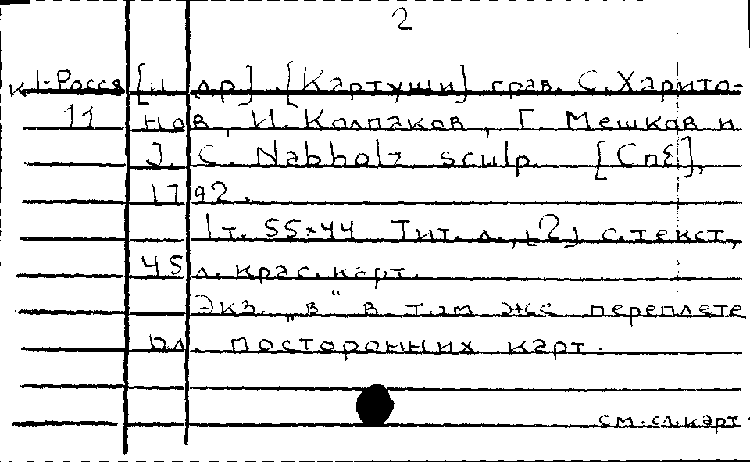 2
к 1-Росся [и др]. [Картуши] грав. С. Харито-
11 нов, И. Колпаков, Г. Мешков и
J. C. Nabholz sculp. [Спб],
1792.
1 т. 55×44 Тит. л., [2] с. текст,
45 л. крас. карт.
Экз. „в" в том же переплете
6 л. посторонних карт.
см. сл. карт.